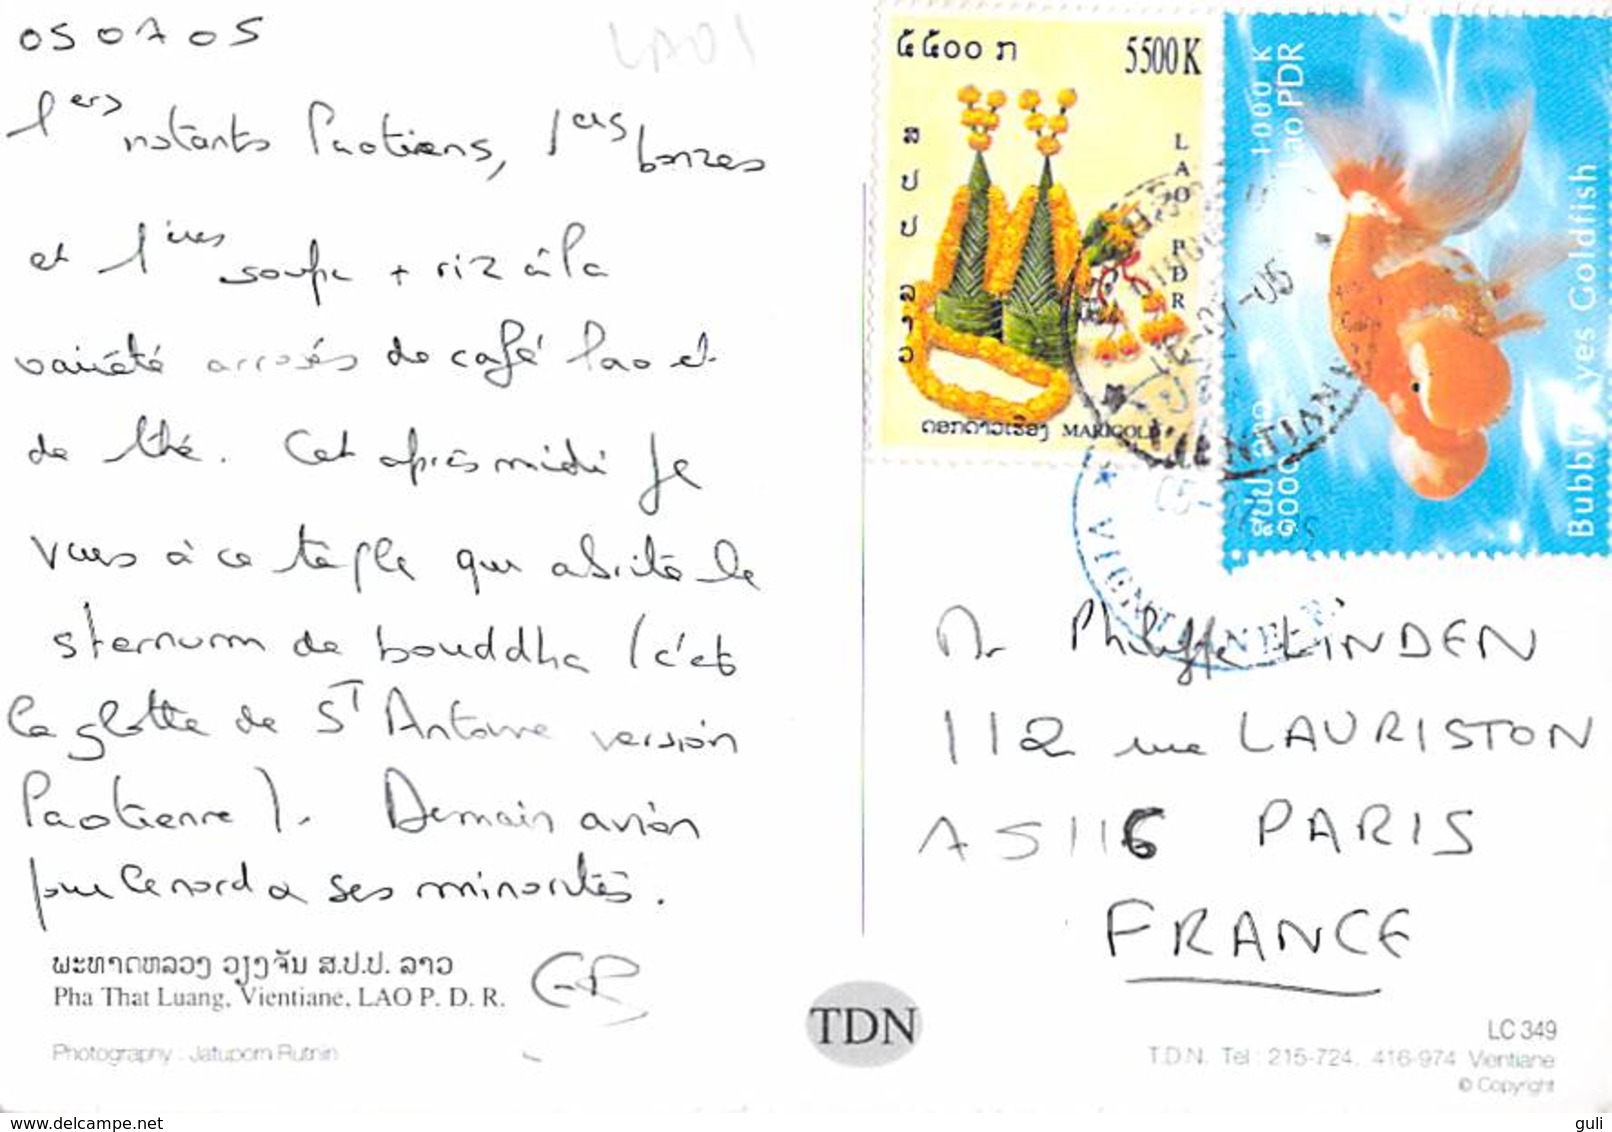 050705
LAOS
1ers instants laotiens, 1ers bonzes
et 1ères soupe + riz à la
variété arrosés de café lao et
de thé. Cet après midi je
vais à ce temple qui abrite le
sternum de bouddha (c'est
la glotte de ST Antoine version
laotienne). Demain avion
pour le nord & ses minorités.
ພະທາດຫລວງ ວຽງຈັນ ສ.ປ.ປ. ລາວ
Pha That Luang, Vientiane, LAO P. D. R.
Photography : Jatuporn Rutnin
໕໕໐໐ ກ
5500K
ສ ປ ປ ລາວ
LAO P D R
ດອກດາວເຮືອງ MARIGOLD
1000 K
Lao PDR
Bubble Eyes Goldfish
໑໐໐໐
VIENTIANE
VIENTIANE
Mr Philippe LINDEN
112 rue LAURISTON
75116 PARIS
FRANCE
TDN
LC 349
T.D.N. Tel : 215-724, 416-974 Vientiane
© Copyright
www.delcampe.net
guli